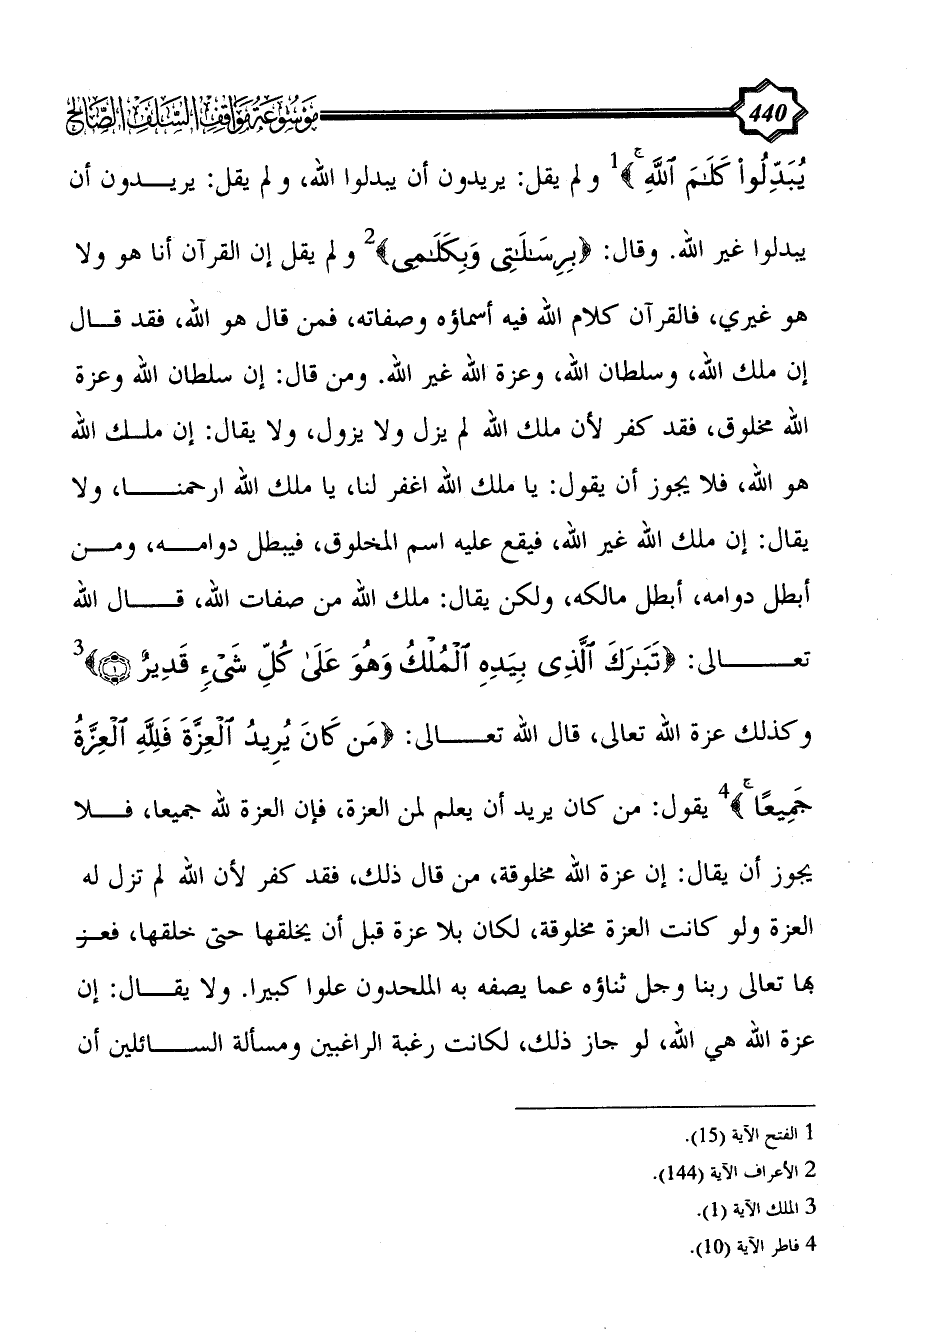 440 موسوعة مواقف السلف الصالح
يُبَدِّلُواْ كَلَٰمَ ٱللَّهِ ۚ﴾1 ولم يقل: يريدون أن يبدلوا الله، ولم يقل: يريدون أن
يبدلوا غير الله. وقال: ﴿بِرِسَٰلَٰتِى وَبِكَلَٰمِى﴾2 ولم يقل إن القرآن أنا هو ولا
هو غيري، فالقرآن كلام الله فيه أسماؤه وصفاته، فمن قال هو الله، فقد قال
إن ملك الله، وسلطان الله، وعزة الله غير الله. ومن قال: إن سلطان الله وعزة
الله مخلوق، فقد كفر لأن ملك الله لم يزل ولا يزول، ولا يقال: إن ملك الله
هو الله، فلا يجوز أن يقول: يا ملك الله اغفر لنا، يا ملك الله ارحمنا، ولا
يقال: إن ملك الله غير الله، فيقع عليه اسم المخلوق، فيبطل دوامه، ومن
أبطل دوامه، أبطل مالكه، ولكن يقال: ملك الله من صفات الله، قال الله
تعالى: ﴿تَبَٰرَكَ ٱلَّذِى بِيَدِهِ ٱلْمُلْكُ وَهُوَ عَلَىٰ كُلِّ شَىْءٍ قَدِيرٌ ۝١﴾3
وكذلك عزة الله تعالى، قال الله تعالى: ﴿مَن كَانَ يُرِيدُ ٱلْعِزَّةَ فَلِلَّهِ ٱلْعِزَّةُ
جَمِيعًا ۚ﴾4 يقول: من كان يريد أن يعلم لمن العزة، فإن العزة لله جميعا، فلا
يجوز أن يقال: إن عزة الله مخلوقة، من قال ذلك، فقد كفر لأن الله لم تزل له
العزة ولو كانت العزة مخلوقة، لكان بلا عزة قبل أن يخلقها حتى خلقها، فعز
بها تعالى ربنا وجل ثناؤه عما يصفه به الملحدون علوا كبيرا. ولا يقال: إن
عزة الله هي الله، لو جاز ذلك، لكانت رغبة الراغبين ومسألة السائلين أن
1 الفتح الآية (15).
2 الأعراف الآية (144).
3 الملك الآية (1).
4 فاطر الآية (10).